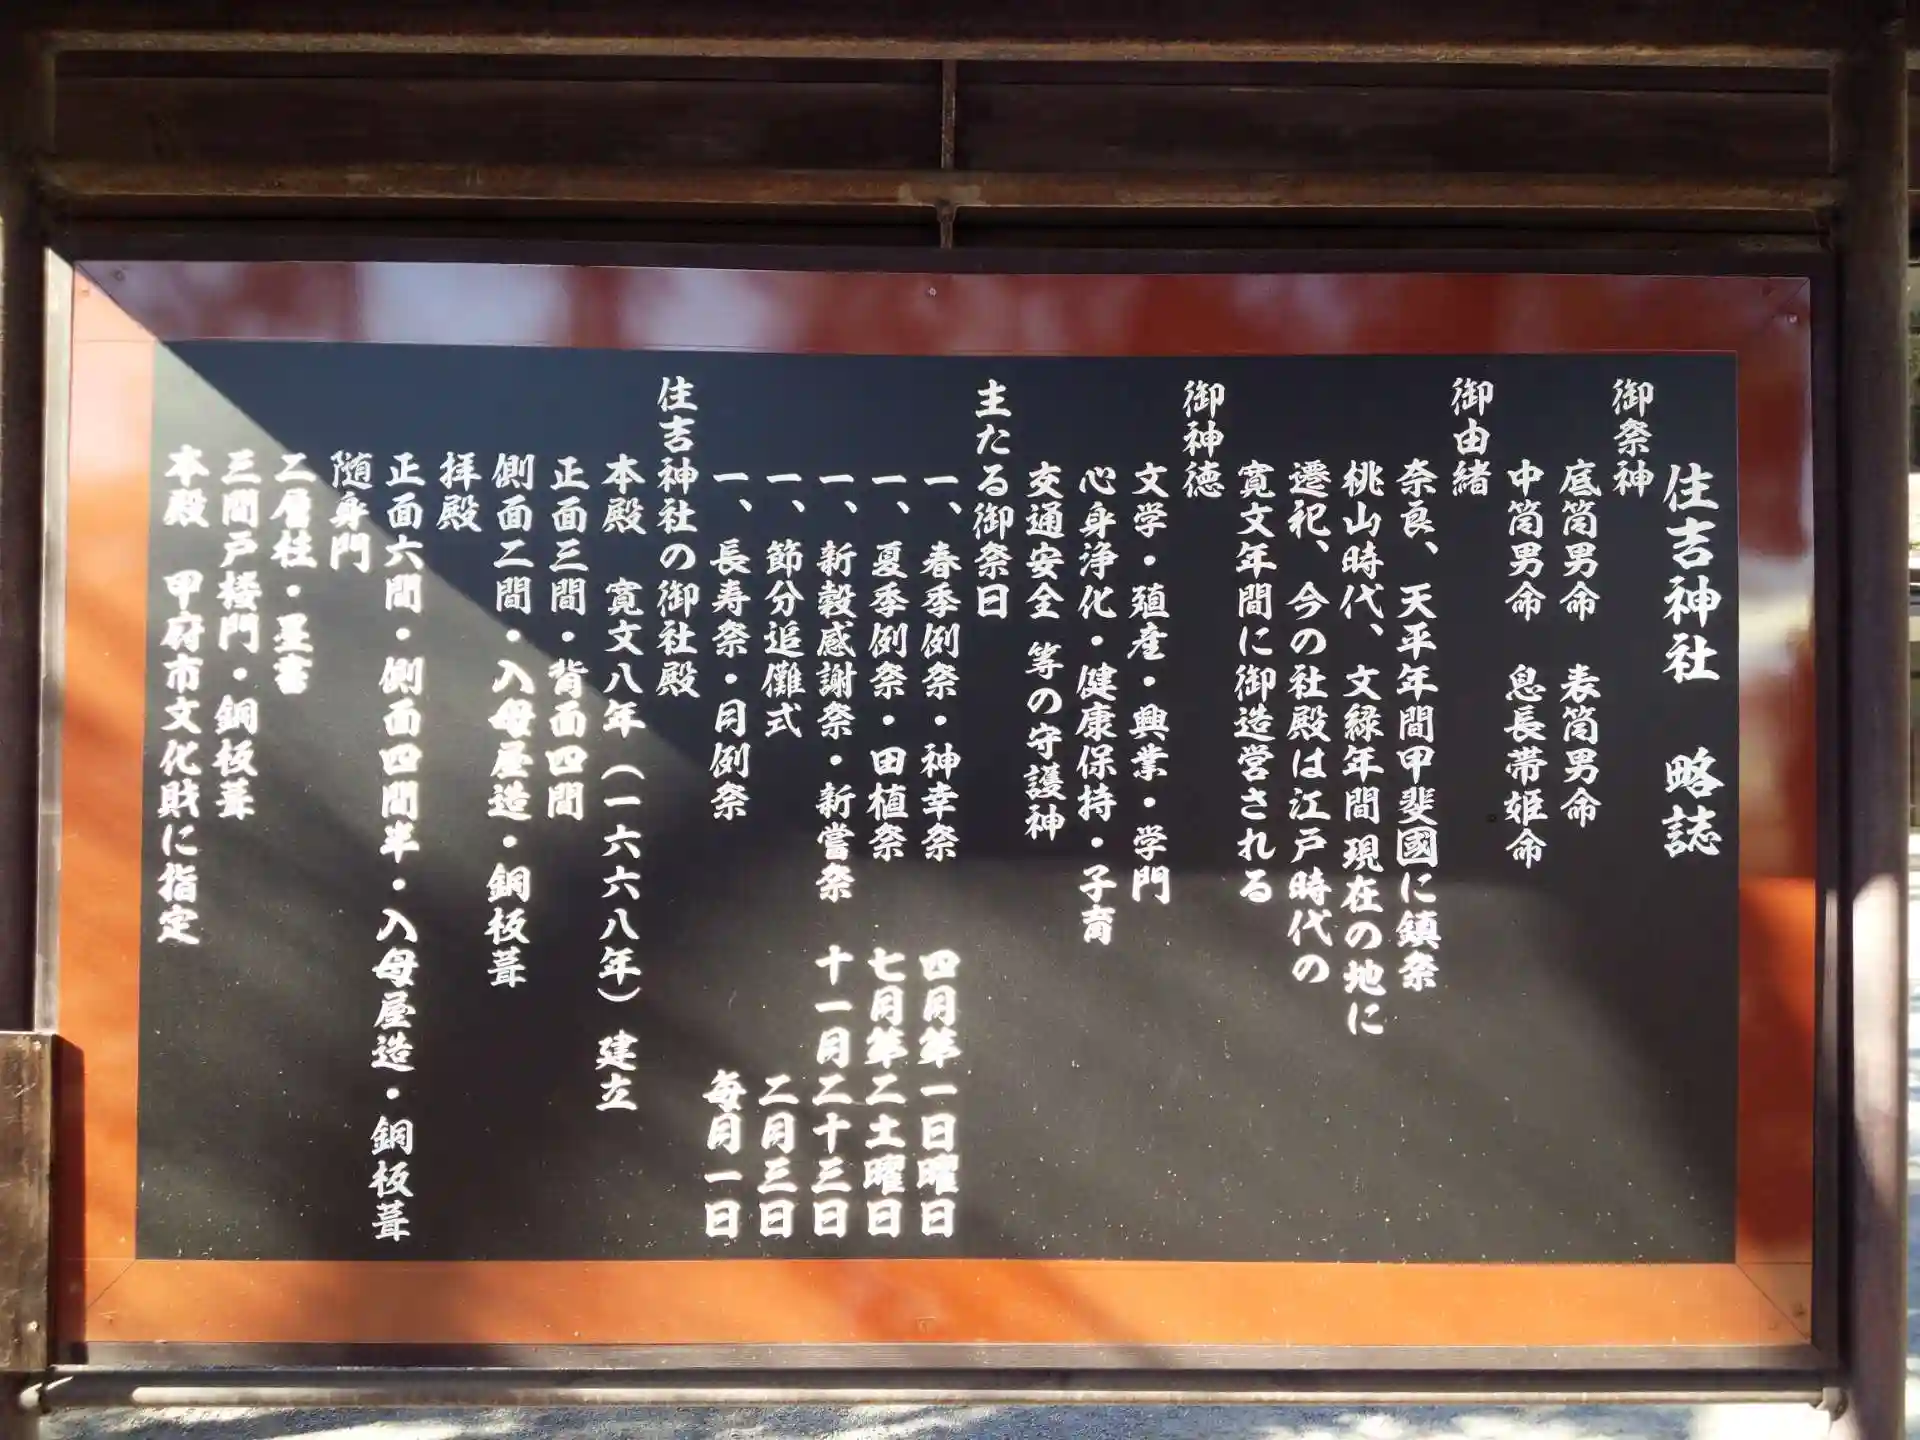 住吉神社 略誌
御祭神
底筒男命 表筒男命
中筒男命 息長帯姫命
御由緒
奈良、天平年間甲斐國に鎮祭
桃山時代、文緑年間現在の地に
遷祀、今の社殿は江戸時代の
寛文年間に御造営される
御神徳
文学・殖産・興業・学門
心身浄化・健康保持・子育
交通安全 等の守護神
主たる御祭日
一、春季例祭・神幸祭 四月第一日曜日
一、夏季例祭・田植祭 七月第二土曜日
一、新穀感謝祭・新嘗祭 十一月二十三日
一、節分追儺式 二月三日
一、長寿祭・月例祭 毎月一日
住吉神社の御社殿
本殿 寛文八年（一六六八年）建立
正面三間・背面四間
側面二間・入母屋造・銅板葺
拝殿
正面六間・側面四間半・入母屋造・銅板葺
随身門
二層柱・墨書
三間戸楼門・銅板葺
本殿 甲府市文化財に指定